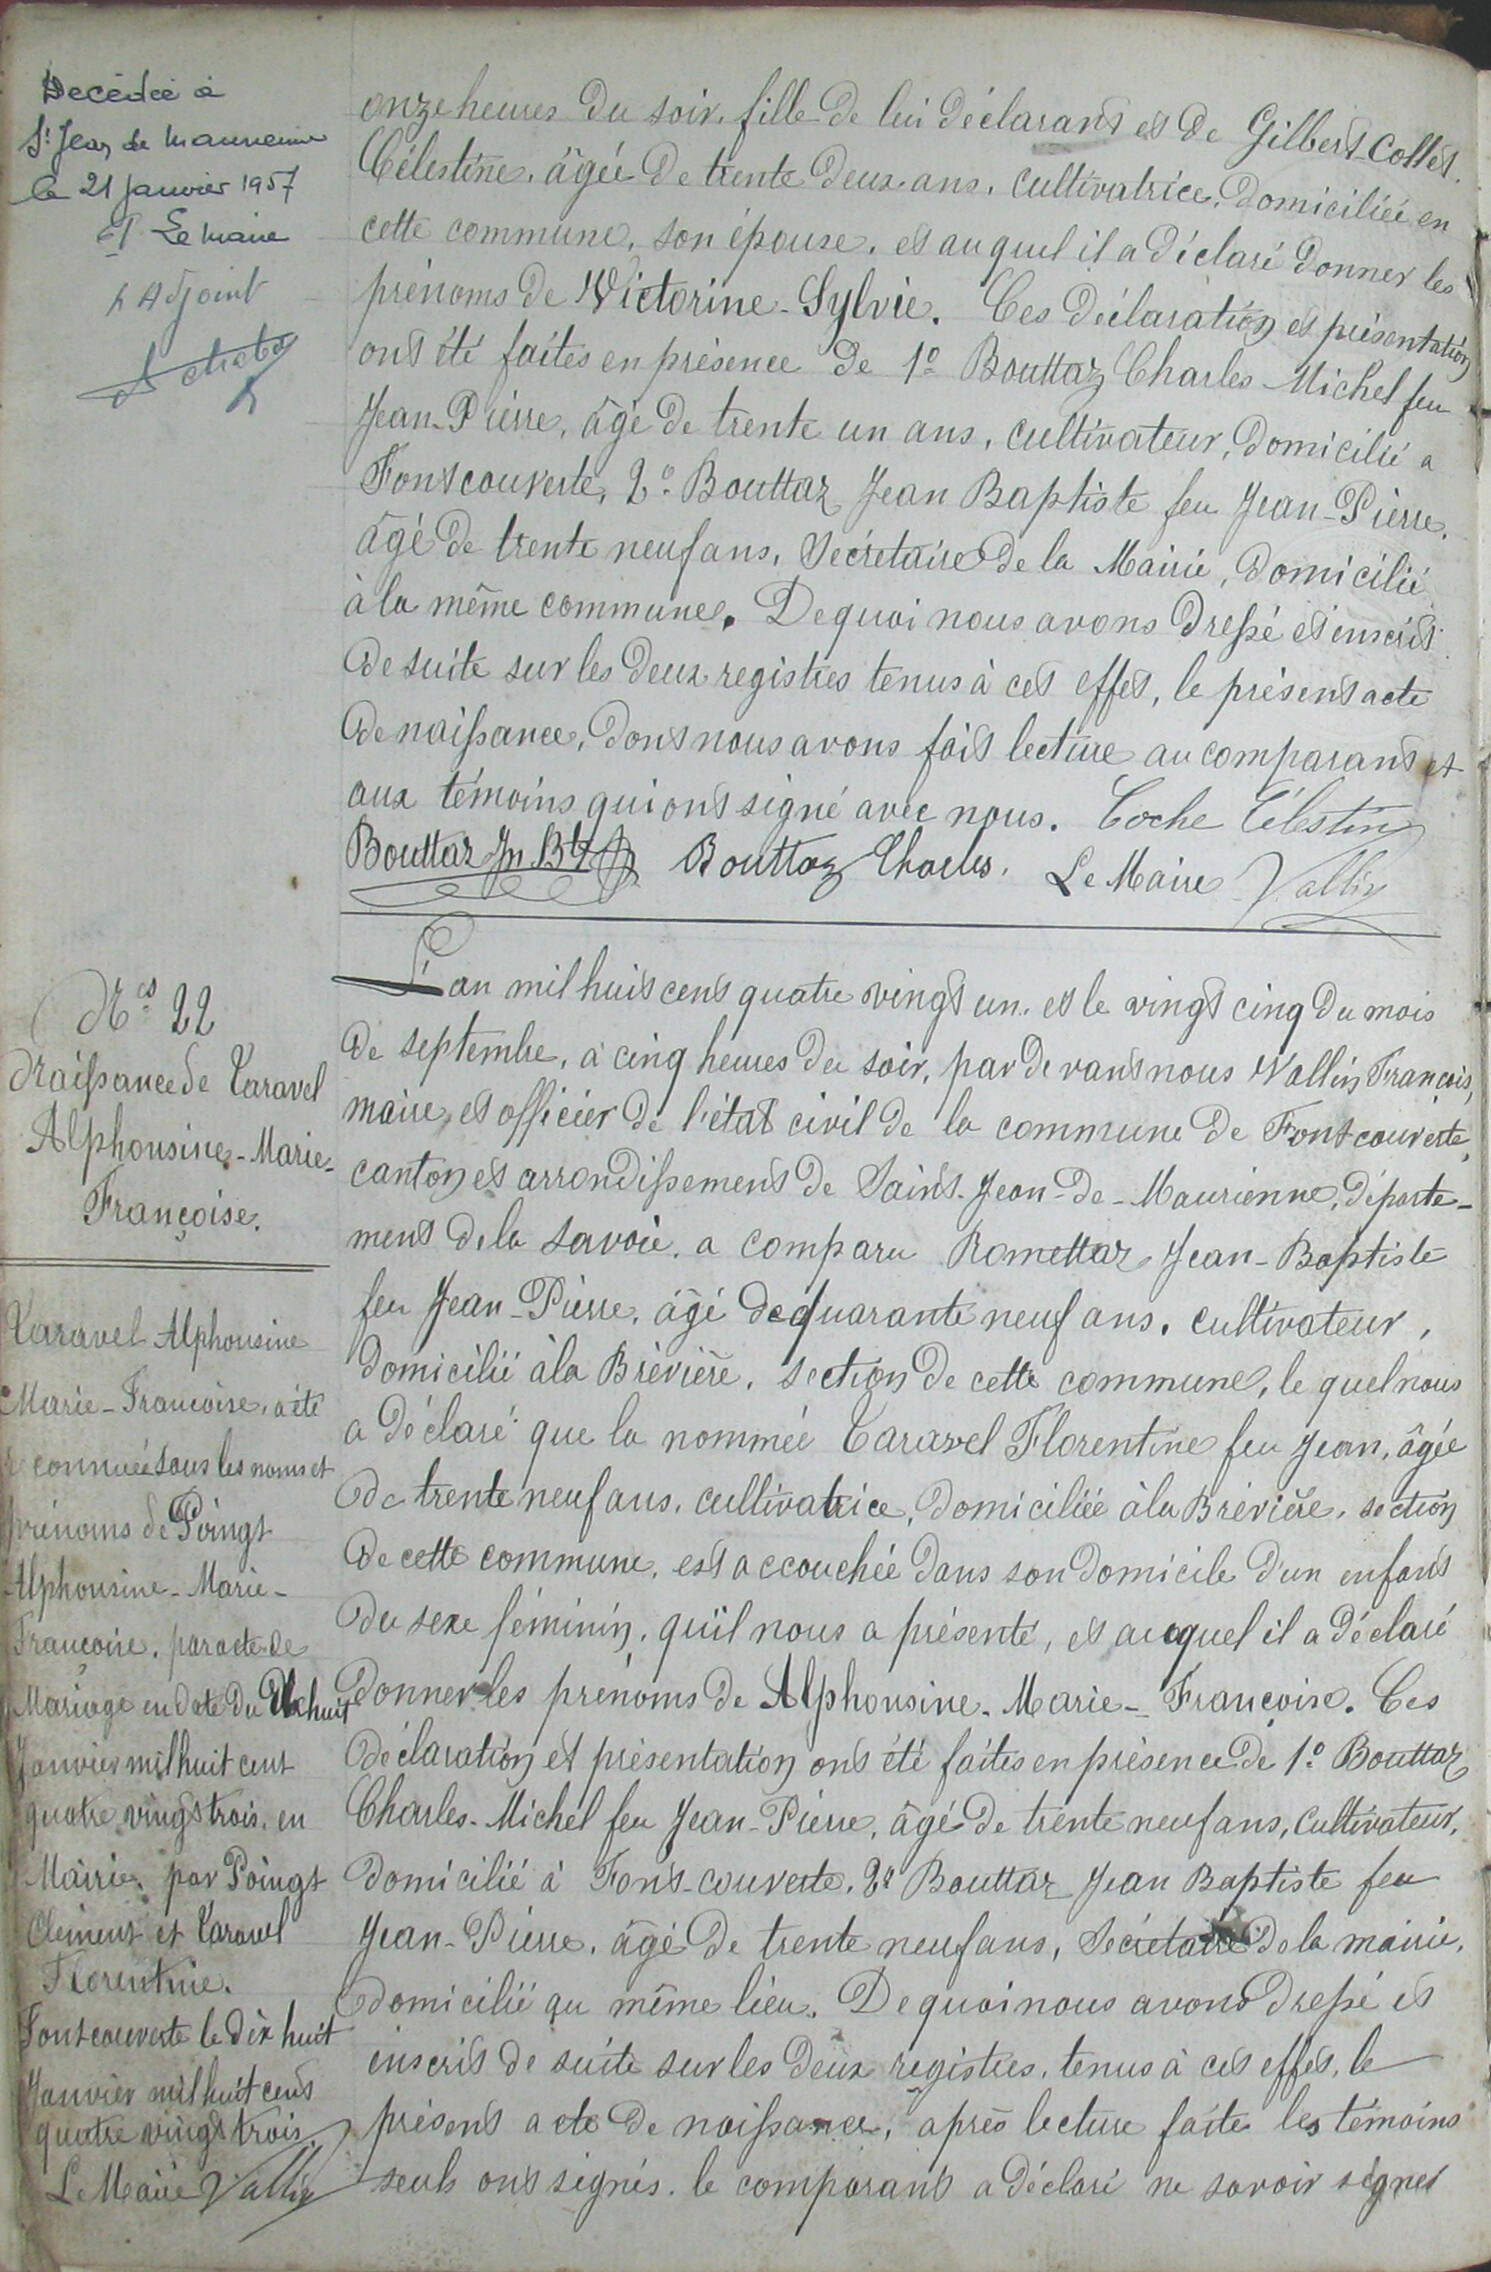 Décédée à
St Jean de Maurienne
le 21 Janvier 1957
Le Maire
L'Adjoint
onze heures du soir, fille de lui déclarant et de Gilbert-Collet
Célestine, âgée de trente deux ans, cultivatrice, domiciliée en
cette commune, son épouse, et auquel il a déclaré donner les
prénoms de Victorine-Sylvie. Ces déclaration et présentation
ont été faites en présence de 1º Bouttaz Charles-Michel feu
Jean-Pierre, âgé de trente un ans, cultivateur, domicilié a
Fontcouverte, 2º Bouttaz Jean Baptiste feu Jean-Pierre,
âgé de trente neuf ans, Secrétaire de la Mairie, domicilié
à la même commune. De quoi nous avons dressé et inscrit
de suite sur les deux registres tenus à cet effet, le présent acte
de naissance, dont nous avons fait lecture au comparant et
aux témoins qui ont signé avec nous. Coche Célestin
Bouttaz Jn Bte Bouttaz Charles. Le Maire Vallin
Nº 22
Naissance de Taravel
Alphonsine-Marie-
Françoise.
Taravel Alphonsine
Marie-Françoise, a été
reconnue sous les noms et
prénoms de Poingt
Alphonsine-Marie-
Françoise, par acte de
Mariage en date du Dix huit
Janvier mil huit cent
quatre vingt trois, en
Mairie, par Poingt
Clément et Taravel
Florentine.
Fontcouverte le dix huit
Janvier mil huit cent
quatre vingt trois
Le Maire Vallin
L'an mil huit cent quatre vingt un, et le vingt cinq du mois
de septembre, à cinq heures du soir, par devant nous Vallin François,
maire, et officier de l'état civil de la commune de Fontcouverte,
canton et arrondissement de Saint-Jean-de-Maurienne, départe-
ment de la Savoie, a comparu Romettaz Jean-Baptiste
feu Jean-Pierre, âgé de quarante neuf ans, cultivateur,
domicilié à la Brévière, section de cette commune, le quel nous
a déclaré que la nommée Taravel Florentine feu Jean, âgée
de trente neuf ans, cultivatrice, domiciliée à la Brévière, section
de cette commune, est accouchée dans son domicile d'un enfant
du sexe féminin, qu'il nous a présenté, et auquel il a déclaré
donner les prénoms de Alphonsine-Marie-Françoise. Ces
déclaration et présentation ont été faites en présence de 1º Bouttaz
Charles-Michel feu Jean-Pierre, âgé de trente neuf ans, cultivateur,
domicilié à Font-couverte, 2º Bouttaz Jean Baptiste feu
Jean-Pierre, âgé de trente neuf ans, Secrétaire de la mairie,
domicilié au même lieu. De quoi nous avons dressé et
inscrit de suite sur les deux registres, tenus à cet effet, le
présent acte de naissance, après lecture faite les témoins
seuls ont signés, le comparant a déclaré ne savoir signer